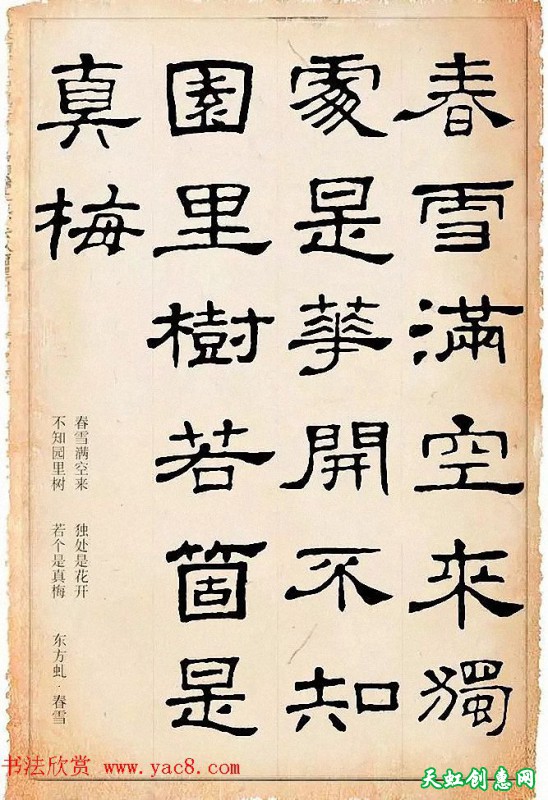 春雪滿空來獨
處是華開不知
園里樹若箇是
真梅
春雪满空来 独处是花开
不知园里树 若个是真梅
东方虬·春雪
书法欣赏 www.yac8.com
天虹创惠网